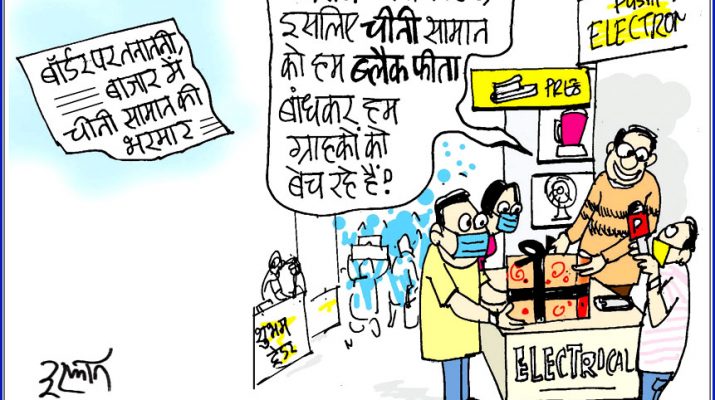 बॉर्डर पर तनातनी,
बाजार में
चीनी सामान की
भरमार
इसलिए चीनी सामान
को हम ब्लैक फीता
बांधकर हम
ग्राहकों को
बेच रहे हैं?
ELECTRON
PRES
शुभम
ट्रेडर
ELECTROCAL
P